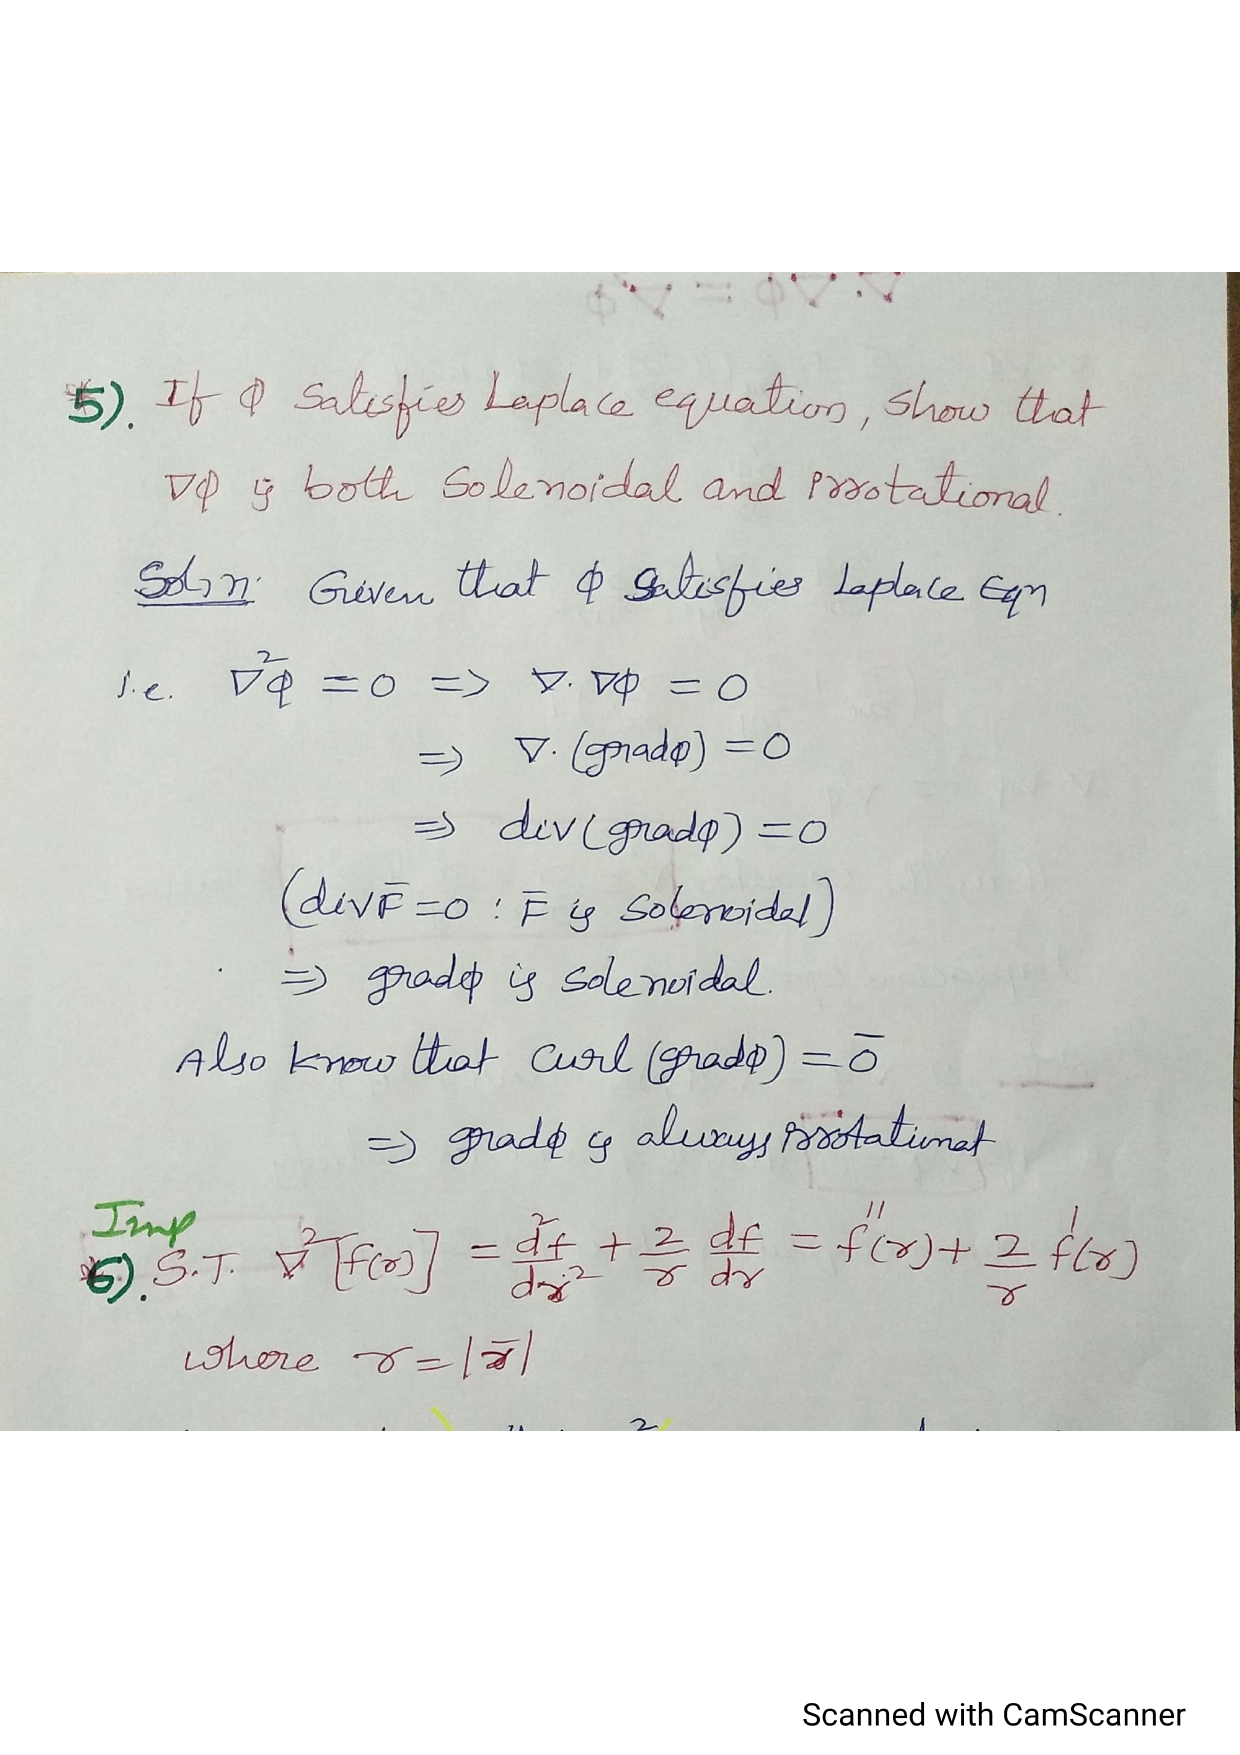 5). If φ Satisfies Laplace equation, Show that
∇φ is both Solenoidal and irrotational.
Soln: Given that φ Satisfies Laplace Eqn
i.e. ∇²φ = 0 => ∇·∇φ = 0
=> ∇·(gradφ) = 0
=> div(gradφ) = 0
(div F̄ = 0 : F̄ is Solenoidal)
=> gradφ is Solenoidal.
Also know that Curl (gradφ) = 0̄
=> gradφ is always irrotational
Imp
6). S.T. ∇²[f(r)] = d²f/dr² + 2/r df/dr = f''(r) + 2/r f'(r)
where r = |r̄|
Scanned with CamScanner